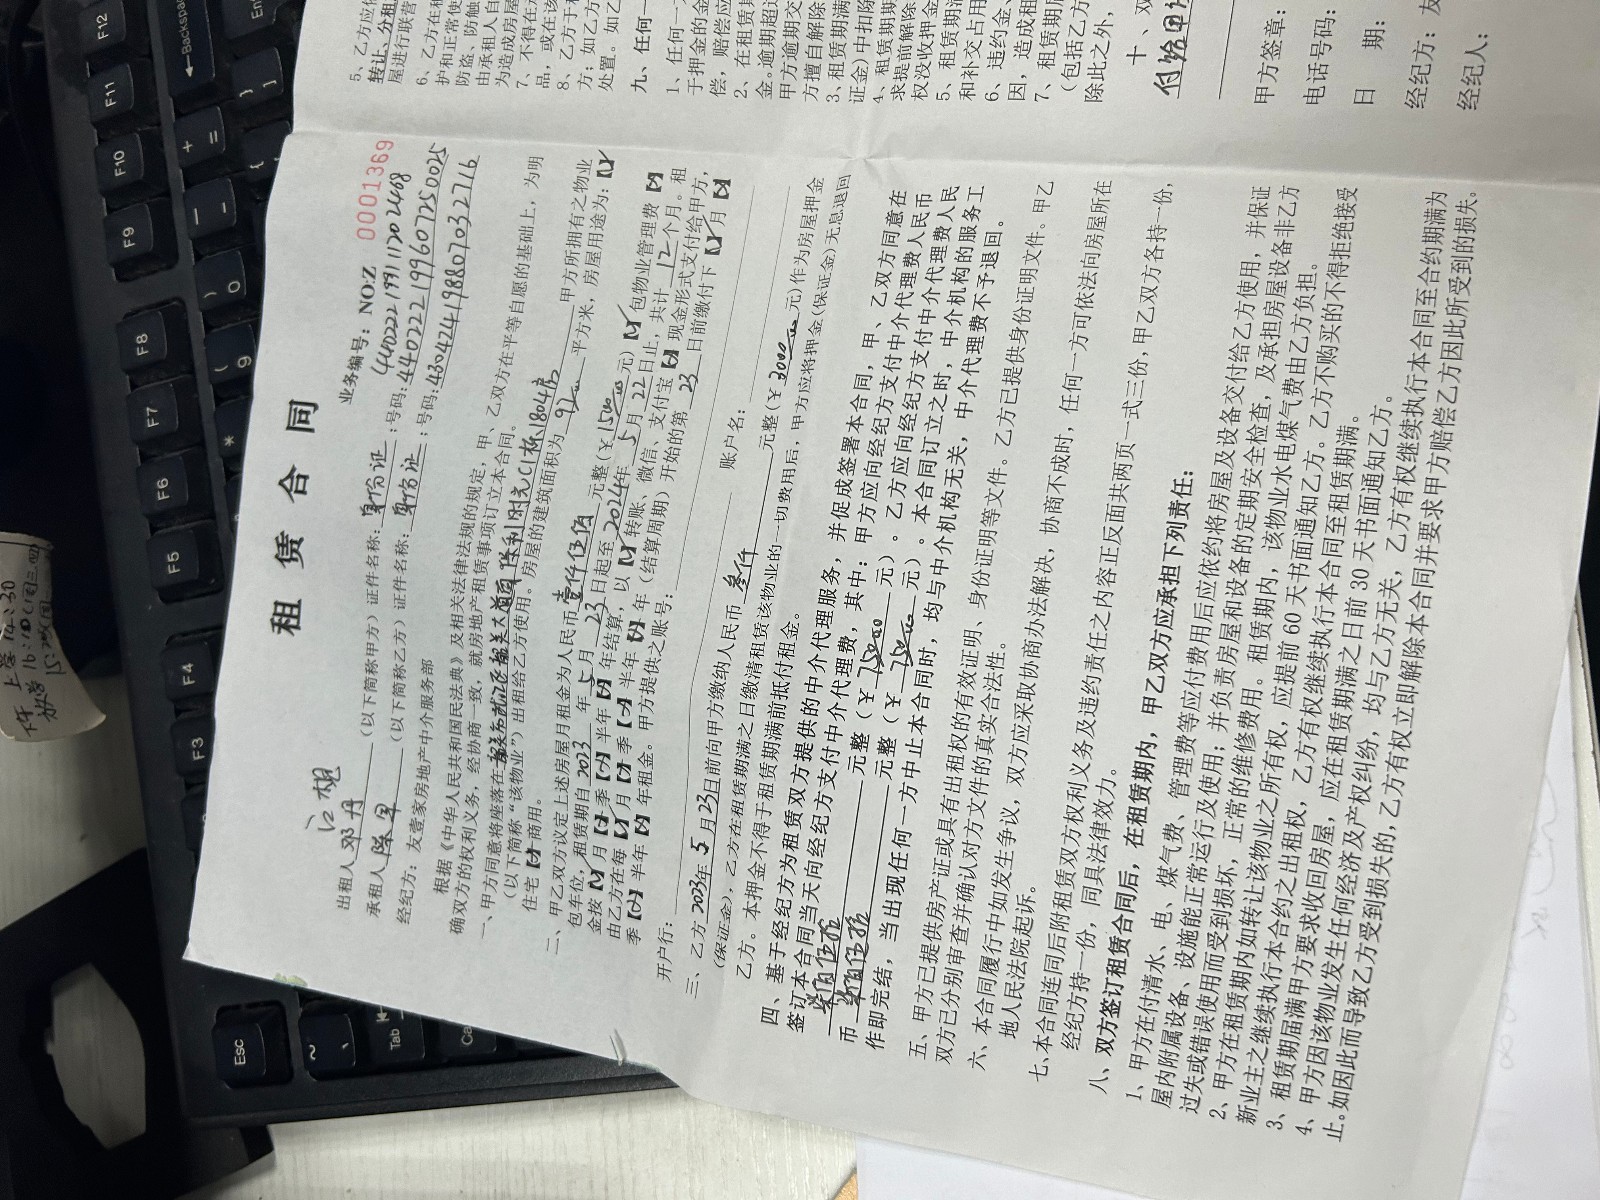 租 赁 合 同
业务编号：NOZ 0001369
江枫
出租人 邓丹 （以下简称甲方）证件名称：身份证 ；号码：440222199111202468
承租人 （以下简称乙方）证件名称：身份证 ；号码：440222199607250025
号码：430424198807032716
经纪方：友壹家房地产中介服务部
根据《中华人民共和国民法典》及相关法律法规的规定，甲、乙双方在平等自愿的基础上，为明
确双方的权利义务，经协商一致，就房地产租赁事项订立本合同。
一、甲方同意将座落在 1804房 甲方所拥有之物业
（以下简称“该物业”）出租给乙方使用。房屋的建筑面积为 92 平方米，房屋用途为：【√】
住宅【×】商用。
二、甲乙双方议定上述房屋月租金为人民币 壹仟伍佰 元整（￥1500.00元）【√】包物业管理费【×】
包车位，租赁期自 2023 年 5 月 23 日起至 2024 年 5 月 22 日止，共计 12 个月。租
金按【√】月【×】季【×】半年【×】年结算，以【√】转账、微信、支付宝【×】现金形式支付给甲方，
由乙方在每【√】月【×】季【×】半年【×】年（结算周期）开始的第 23 日前缴付下【√】月【×】
季【×】半年【×】年租金。甲方提供之账号：
开户行： 账户名：
三、乙方 2023年 5 月 23 日前向甲方缴纳人民币 叁仟 元整（￥3000.00元）作为房屋押金
（保证金），乙方在租赁期满之日缴清租赁该物业的一切费用后，甲方应将押金（保证金）无息退回
乙方。本押金不得于租赁期满前抵付租金。
四、基于经纪方为租赁双方提供的中介代理服务，并促成签署本合同，甲、乙双方同意在
签订本合同当天向经纪方支付中介代理费，其中：甲方应向经纪方支付中介代理费人民币
柒佰伍拾 元整（￥750.00 元）。乙方应向经纪方支付中介代理费人民
币 柒佰伍拾 元整（￥750.00 元）。本合同订立之时，中介机构的服务工
作即完结，当出现任何一方中止本合同时，均与中介机构无关，中介代理费不予退回。
五、甲方已提供房产证或具有出租权的有效证明、身份证明等文件。乙方已提供身份证明文件。甲乙
双方已分别审查并确认对方文件的真实合法性。
六、本合同履行中如发生争议，双方应采取协商办法解决，协商不成时，任何一方可依法向房屋所在
地人民法院起诉。
七、本合同连同后附租赁双方权利义务及违约责任之内容正反面共两页一式三份，甲乙双方各持一份，
经纪方持一份，同具法律效力。
八、双方签订租赁合同后，在租赁期内，甲乙双方应承担下列责任：
1、甲方在付清水、电、煤气费、管理费等应付费用后应依约将房屋及设备交付给乙方使用，并保证
屋内附属设备、设施能正常运行及使用；并负责房屋和设备的定期安全检查，及承担房屋设备非乙方
过失或错误使用而受到损坏，正常的维修费用。租赁期内，该物业水电煤气费由乙方负担。
2、甲方在租赁期内如转让该物业之所有权，应提前 60 天书面通知乙方。乙方不购买的不得拒绝接受
新业主之继续执行本合约之出租权，乙方有权继续执行本合同至租赁期满。
3、租赁期届满甲方要求收回房屋，应在租赁期满之日前 30 天书面通知乙方。
4、甲方因该物业发生任何经济及产权纠纷，均与乙方无关，乙方有权继续执行本合同至合约期满为
止。如因此而导致乙方受到损失的，乙方有权立即解除本合同并要求甲方赔偿乙方因此所受到的损失。
5、乙方应依
转让、分租
屋进行联营
6、乙方在租
护和正常使
防盗、防触
由承租人自
为造成房屋
7、不得在
品，或在该
8、乙方于
方；如乙方
处置。如乙
九、任何一
1、任何一
于押金的金
偿，赔偿应
2、在租赁
金。逾期超过
甲方逾期交
方擅自解除
3、租赁期满
证金）中扣除
4、租赁期期
求提前解除
权没收押金
5、租赁期满
和补交占用
6、违约金、
因，造成租
7、租赁期
（包括乙方
除此之外，
十、双
付给甲方
甲方签章：
电话号码：
日 期：
经纪方：友
经纪人：
Esc
F3
F4
F5
F6
F7
F8
F9
F10
F11
F12
Tab
Backspace